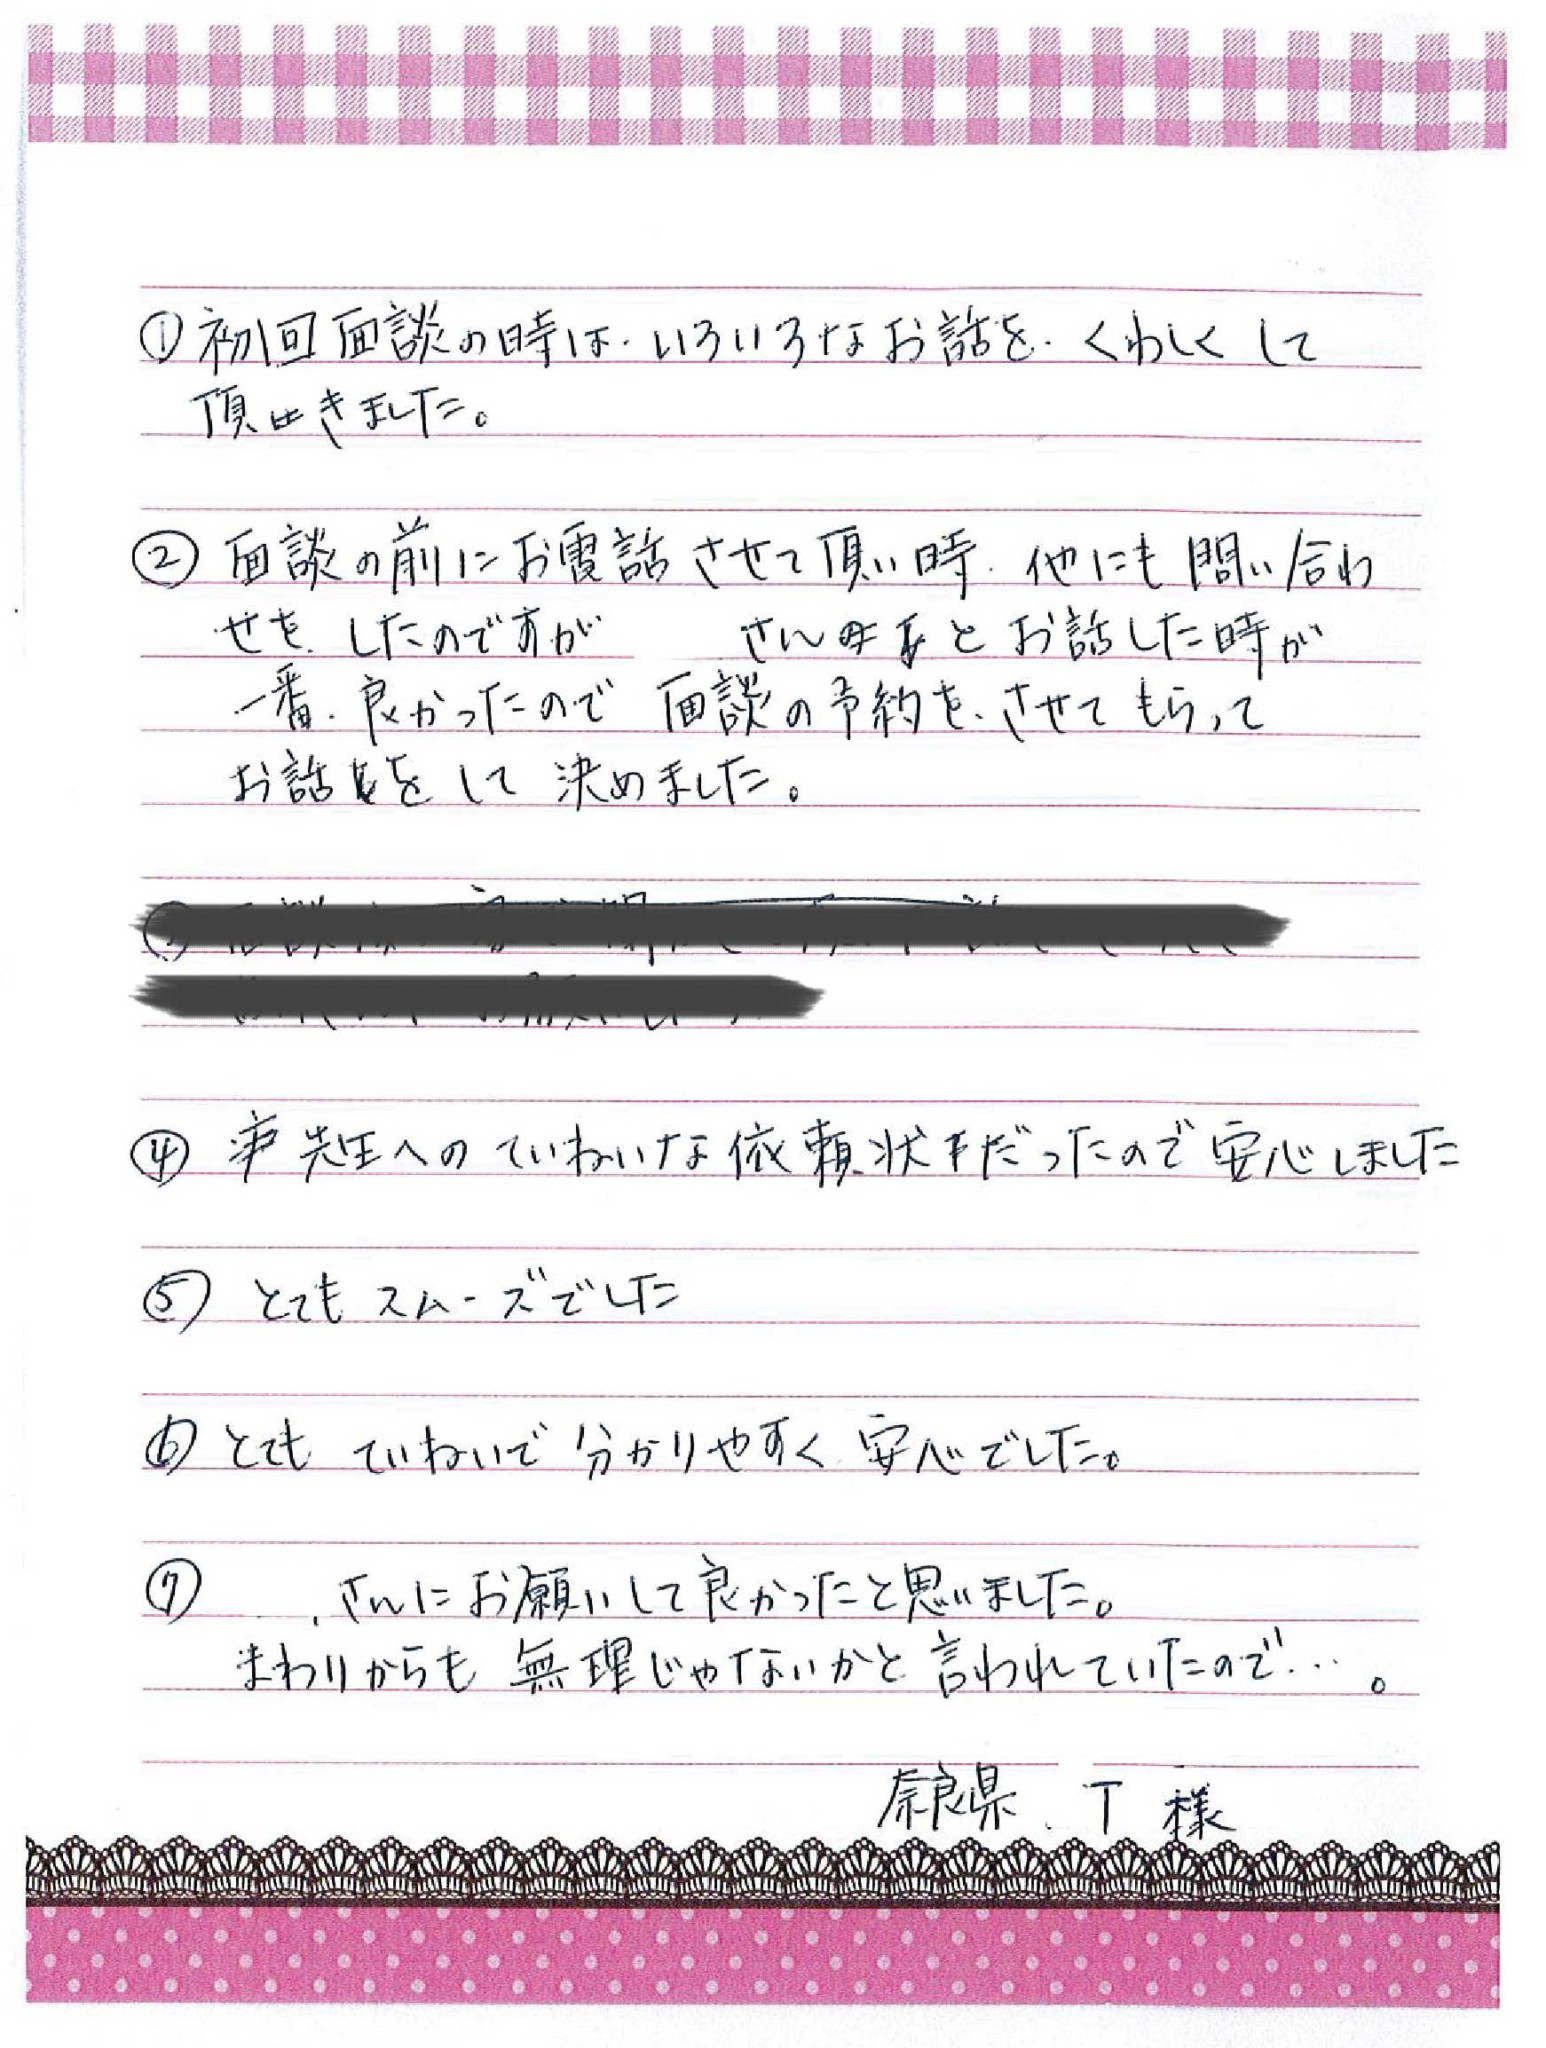 ①初回面談の時は、いろいろなお話を、くわしくして
頂きました。
②面談の前にお電話させて頂い時、他にも問い合わ
せを、したのですが さんとお話した時が
一番、良かったので面談の予約を、させてもらって
お話をして決めました。
④ 先生へのていねいな依頼状だったので安心しました
⑤とてもスムーズでした
⑥とても ていねいで分かりやすく、安心でした。
⑦ さんにお願いして良かったと思いました。
まわりからも無理じゃないかと言われていたので…。
奈良県 T 様